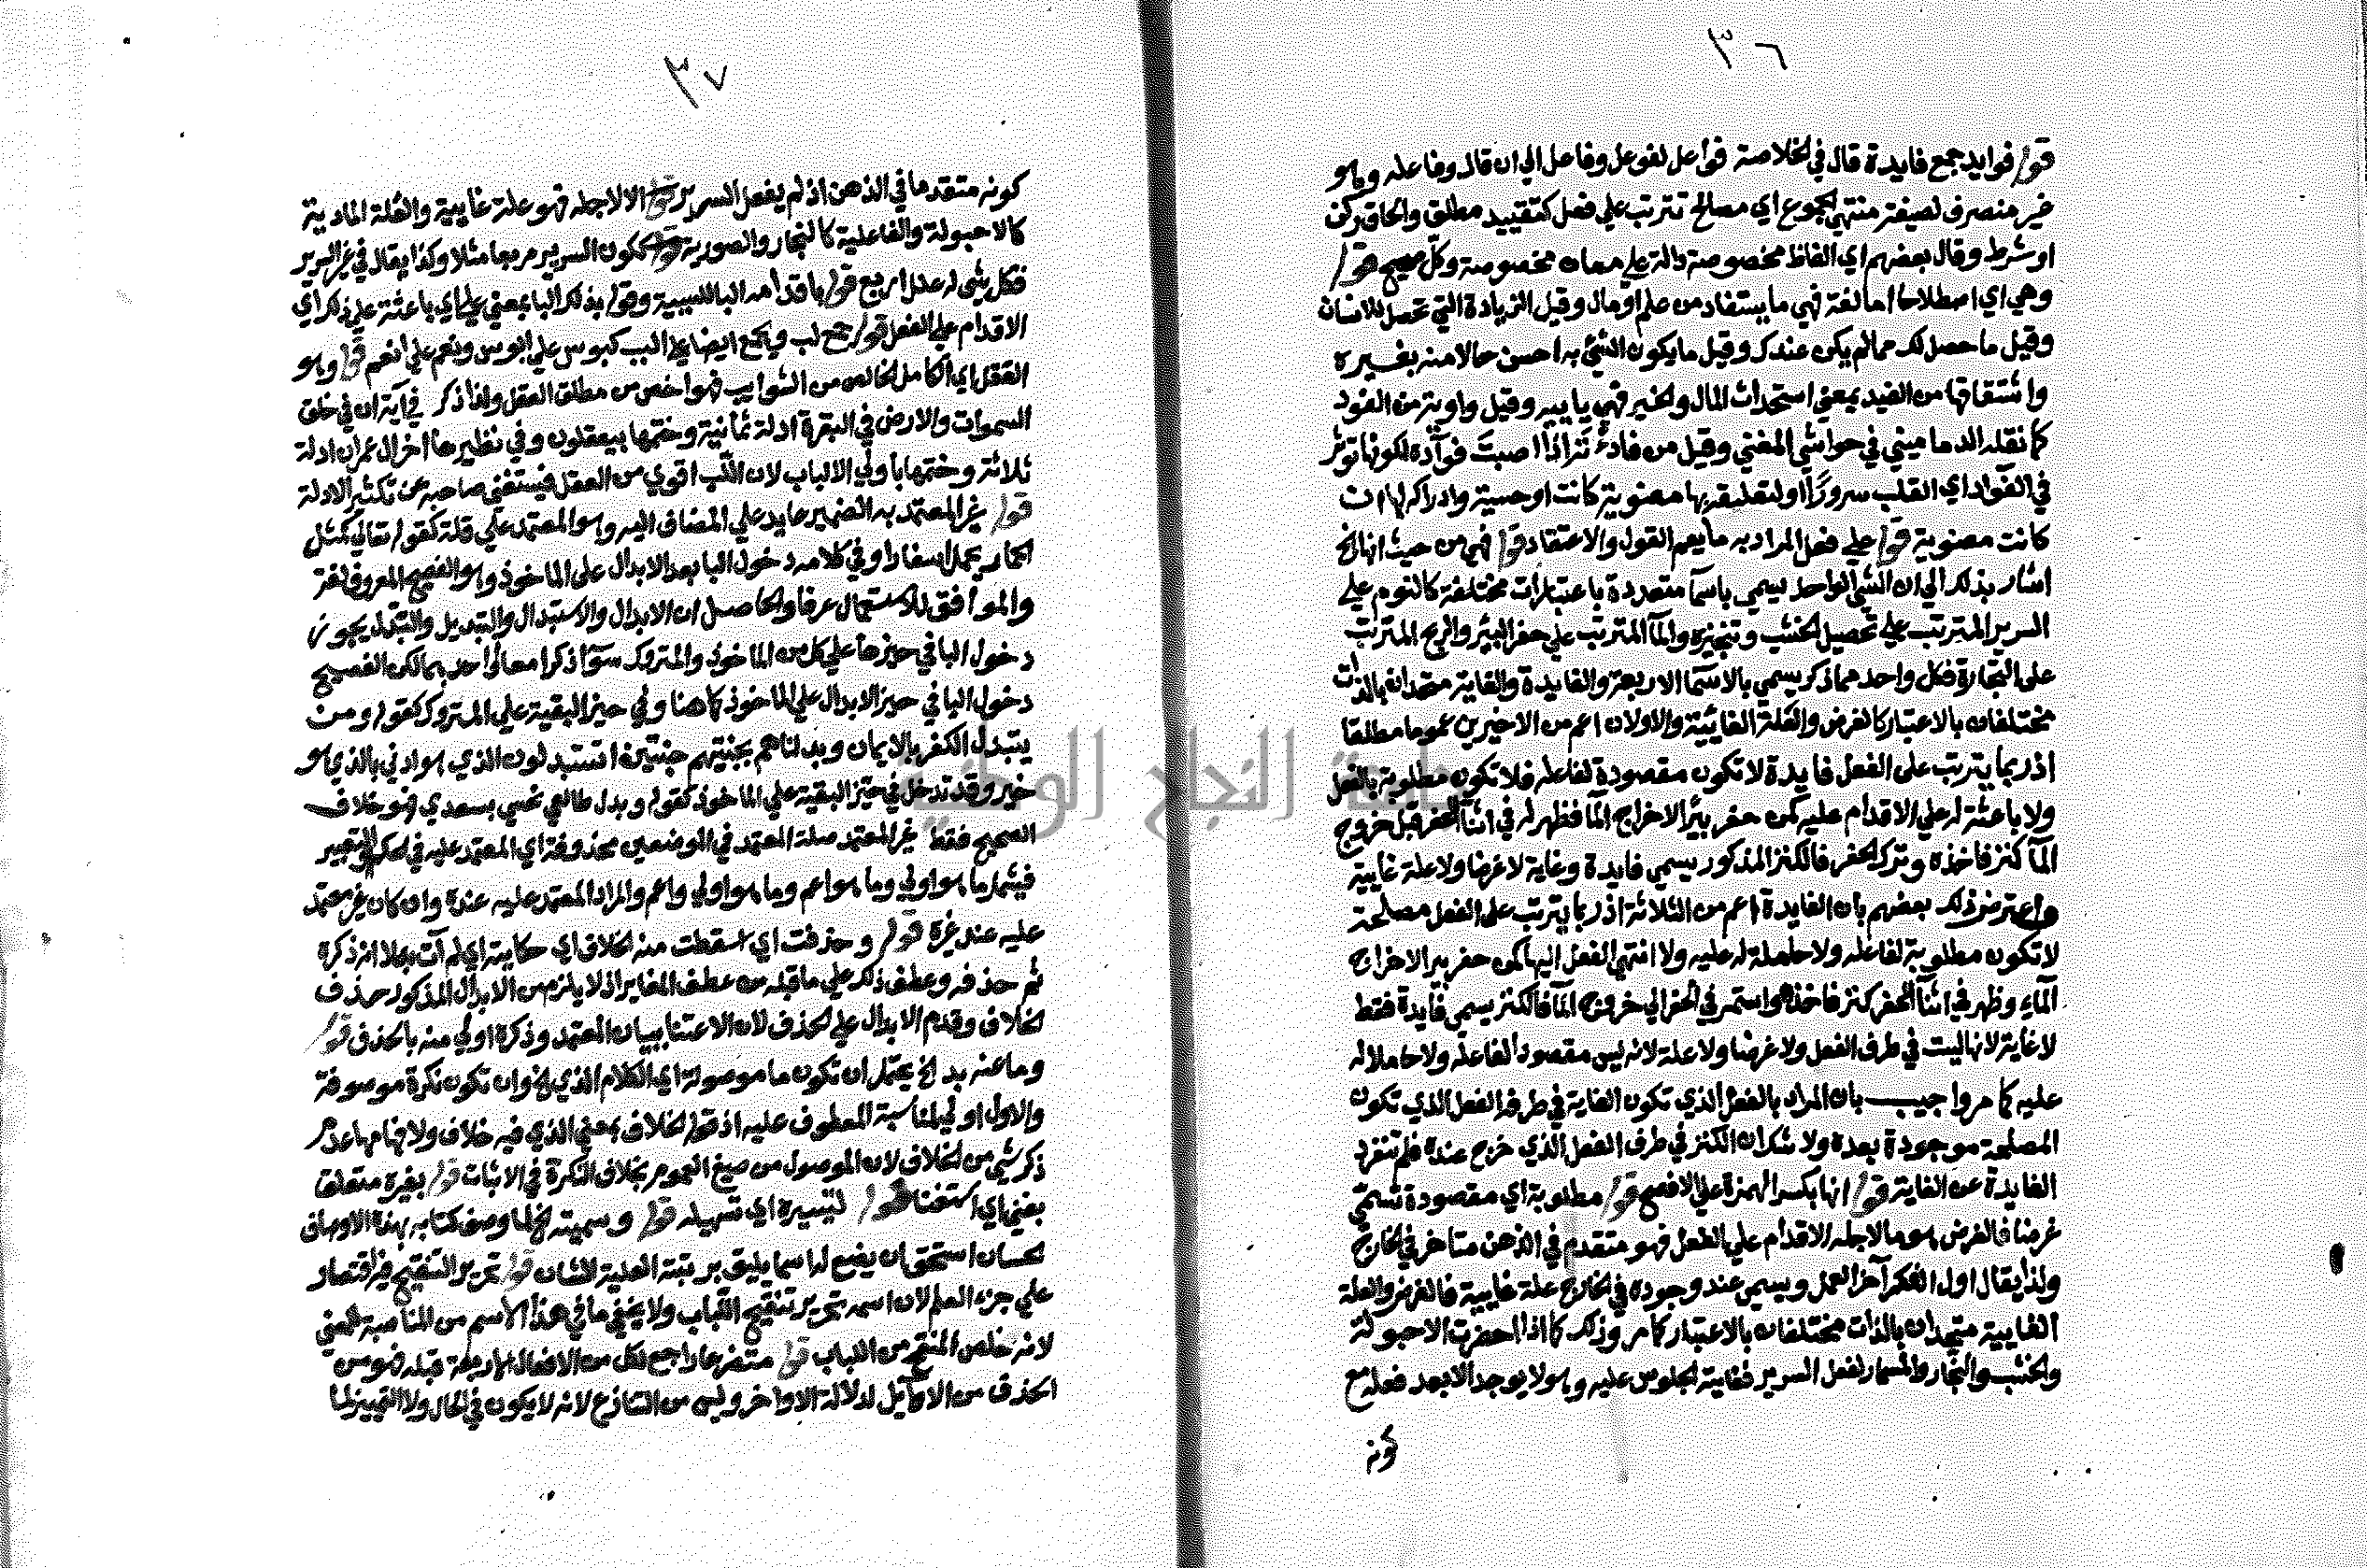 ٣٦
قوله فوايد جمع فايدة قال في الخلاصة فواعل لفوعل وفاعل الى ان قال وفاعله وهو
غير منصرف لصيغة منتهى الجموع اي مصالح تترتب على فعل كتقييد مطلق والحاق ركن
او شرط وقال بعضهم اي الفاظ مخصوصة دالة على معان مخصوصة وكل صحيح قوله
وهي اي اصطلاحا اما لغة فهي ما يستفاد من علم او مال وقيل الزيادة التي تحصل للانسان
وقيل ما حصل لك مما لم يكن عندك وقيل ما يكون الشئ به احسن حالا منه بغيره
واشتقاقها من الفيد بمعنى استحداث المال والخير فهي يايية وقيل واوية من الفود
كما نقله الدماميني في حواشي المغني وقيل من فادءتَه اذا اصبتَ فوآده لكونها توثر
في الفوآد اي القلب سرورًا او لتعلقه بها معنوية كانت او حسية وادراكه لها ان
كانت معنوية قوله على فعل المراد به ما يعم القول والاعتقاد قوله فهي من حيث انها الخ
اشار بذلك الى ان الشئ الواحد يسمى باسمآ متعددة باعتبارات مختلفة كالنوم على
السرير المترتب على تحصيل الخشب وتنجيزه والمآ المترتب على حفر البئر والربح المترتب
على التجارة فكل واحد مما ذكر يسمى بالاسمآ الاربعة والفايدة والغاية متحدان بالذات
مختلفان بالاعتبار كالغرض والعلة الغائية والاولان اعم من الاخيرين عموما مطلقا
اذ ربما يترتب على الفعل فايدة لا تكون مقصودة لفاعله فلا تكون مطلوبة بالفعل
ولا باعثة له على الاقدام عليه كمن حفر بئرا لاخراج المآ فظهر له في اثنآ الحفر قبل خروج
المآ كنز فاخذه وترك الحفر فالكنز المذكور يسمى فايدة وغاية لا غرضا ولا علة غايية
واعترض ذلك بعضهم بان الفايدة اعم من الثلاثة اذ ربما يترتب على الفعل مصلحة
لا تكون مطلوبة لفاعله ولا حاملة له عليه ولا انتهى الفعل اليها كمن حفر بيرا لاخراج
المآء وظهر في اثنآ الحفر كنز فاخذه واستمر في الحفر الى خروج المآ فالكنز يسمى فآيدة فقط
لا غاية لانها ليست في طرف الفعل ولا غرضا ولا علة لانه ليس مقصودا لفاعله ولا حاملا له
عليه كما مر واجيب بان المراد بالفعل الذي تكون الغاية في طرفه الفعل الذي تكون
المصلحة موجودة بعده ولا شك ان الكنز في طرف الفعل الذي خرج عنده فلم تنفرد
الفايدة عن الغاية قوله انها بكسر الهمزة على الافصح قوله مطلوبة اي مقصودة تسمى
غرضا فالغرض هو ما لاجله الاقدام على الفعل فهو متقدم في الذهن متاخر في الخارج
ولذا يقال اول الفكر آخر العمل ويسمى عند وجوده في الخارج علة غايية فالغرض والعلة
الغايية متحدان بالذات مختلفان بالاعتبار كما مر وذلك كما اذا احضرت الاحبولة
والخشب والنجار والمسمار لفعل السرير فغاية الجلوس عليه وهو لا يوجد الا بعد فعله مع
كونه
٣٧
كونه متقدما في الذهن اذ لم يفعل السرير الا لاجله فهو علة غايية والعلة المادية
كالاحبولة والفاعلية كالنجار والصورية ككون السرير مربعا مثلا وكذا يقال في غير السرير
فكل شئ له علل اربع قوله باقدامه البا للسببية وقوله بذلك البا بمعنى على اي باعثة على ذكر اي
الاقدام على الفعل قوله جمع لب ويجمع ايضا على البب كبوس على ابوس ونعم على انعم قوله وهو
العقل اي الكامل الخالص من الشوايب فهو اخص من مطلق العقل ولذا ذكر في آية ان في خلق
السموات والارض في البقرة ادلة ثمانية وختمها بيعقلون وفي نظيرها اخر ال عمران ادلة
ثلاثة وختمها باولي الالباب لان اللب اقوى من العقل فيستغنى صاحبه عن تكثير الادلة
قوله غير المعتمد به الضمير عايد على المضاف اليه وهو المعتمد على قلة كقوله تعالى كمثل
الحمار يحمل اسفارا وفي كلامه دخول البا بعد الابدال على الماخوذ وهو الفصيح المعروف لغة
والموافق للاستعمال عرفا والحاصل ان الابدال والاستبدال والتبديل والتبدل يجوز
دخول البا في حيزها على كل من الماخوذ والمتروك سوآ ذكرا معا او احدهما لكن الفصيح
دخول البا في حيز الابدال على الماخوذ كما هنا وفي حيز البقية على المتروك كقوله ومن
يتبدل الكفر بالايمان وبدلناهم بجنتيهم جنتين اتستبدلون الذي هو ادنى بالذي هو
خير وقد تدخل في حيز البقية على الماخوذ كقوله وبدل طالعي نحسي بسعدي فهو خلاف
الصحيح فقط غير المعتمد صلة المعتمد في الموضعين محذوفة اي المعتمد عليه في الحكم والتعبير
فيشمل ما هو اولى وما هو اعم وما هو اولى واعم والمراد المعتمد عليه عنده وان كان غير معتمد
عليه عند غيره قوله وحذفت اي اسقطت منه الخلاف اي حكايته اي لم آت بها لا انه ذكره
ثم حذفه وعطف ذلك على ما قبله من عطف المغاير اذ لا يلزم من الابدال المذكور حذف
الخلاف وقدم الابدال على الحذف لان الاعتنا ببيان المعتمد وذكره اولى منه بالحذف قوله
وما عنه بد الخ يحتمل ان تكون ما موصولة اي الكلام الذي الخ وان تكون نكرة موصوفة
والاول اولى لمناسبة المعطوف عليه اذ قوله الخلاف بمعنى الذي فيه خلاف ولافهامها عدم
ذكر شئ من الخلاف لان الموصول من صيغ العموم بخلاف النكرة في الاثبات قوله بغيره متعلقا
بغني اي استغنا قوله لتيسيره اي تسهيله قوله وسميته الخ لما وصف كتابه بهذه الاوصاف
الحسان استحق ان يضع له اسما يليق برتبته العلية الشان قوله تحرير التنقيح فيه اقتصار
على جزء العلم لان اسمه تحرير تنقيح اللباب ولا يخفى ما في هذا الاسم من المناسبة للمعنى
لانه خلص المنتقح من اللباب قوله متضرعا راجع لكل من الافعال الاربعة قبله فهو من
الحذف من الاوآيل لدلالة الاواخر وليس من التنازع لانه لا يكون في الحال ولا التمييز لما